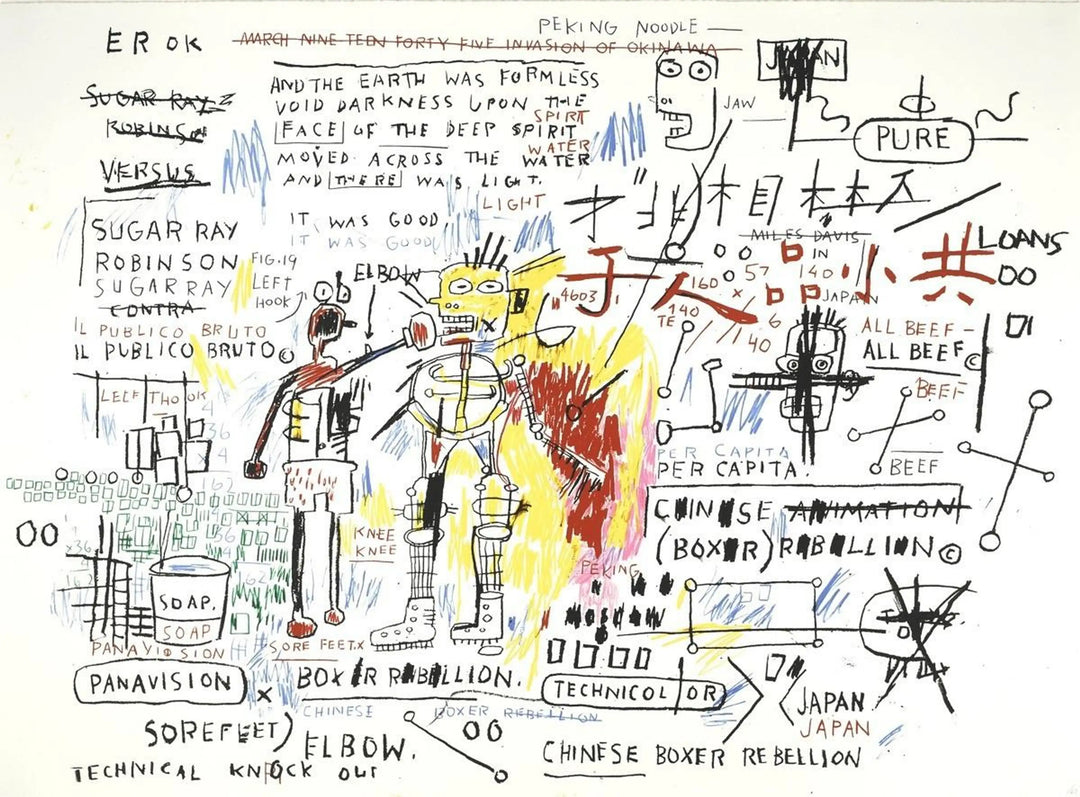 PEKING NOODLE —
EROK
MARCH NINE TEEN FORTY FIVE INVASION OF OKINAWA
JAPAN
SUGAR RAY
ROBINSON
VERSUS
AND THE EARTH WAS FORMLESS
VOID DARKNESS UPON THE
SPIRIT
FACE OF THE DEEP SPIRIT
WATER
MOVED ACROSS THE WATER
AND THERE WAS LIGHT.
LIGHT
IT WAS GOOD
IT WAS GOOD
JAW
PURE
MILES DAVIS
IN
LOANS
OO
57
140
160 x
JAPAN
4603
140
TE
6
40
子人品小共
SUGAR RAY
ROBINSON
SUGAR RAY
CONTRA
IL PUBLICO BRUTO
IL PUBLICO BRUTO ©
FIG.19
LEFT
HOOK
ELBOW
ALL BEEF —
ALL BEEF ©
BEEF
BEEF
LEEF THOOK
36
x 4
162
KNEE
KNEE
PER CAPITA
PER CAPITA.
CHINESE ANIMATION
(BOXER) REBELLION ©
OO
SOAP.
SOAP
PEKING
MOSCOW
PANAVISION
SORE FEET.X
PANAVISION
x
BOXER REBELLION.
TECHNICOLOR
JAPAN
JAPAN
CHINESE BOXER REBELLION
SOREFEET)
ELBOW.
OO
CHINESE BOXER REBELLION
TECHNICAL KNOCK OUT